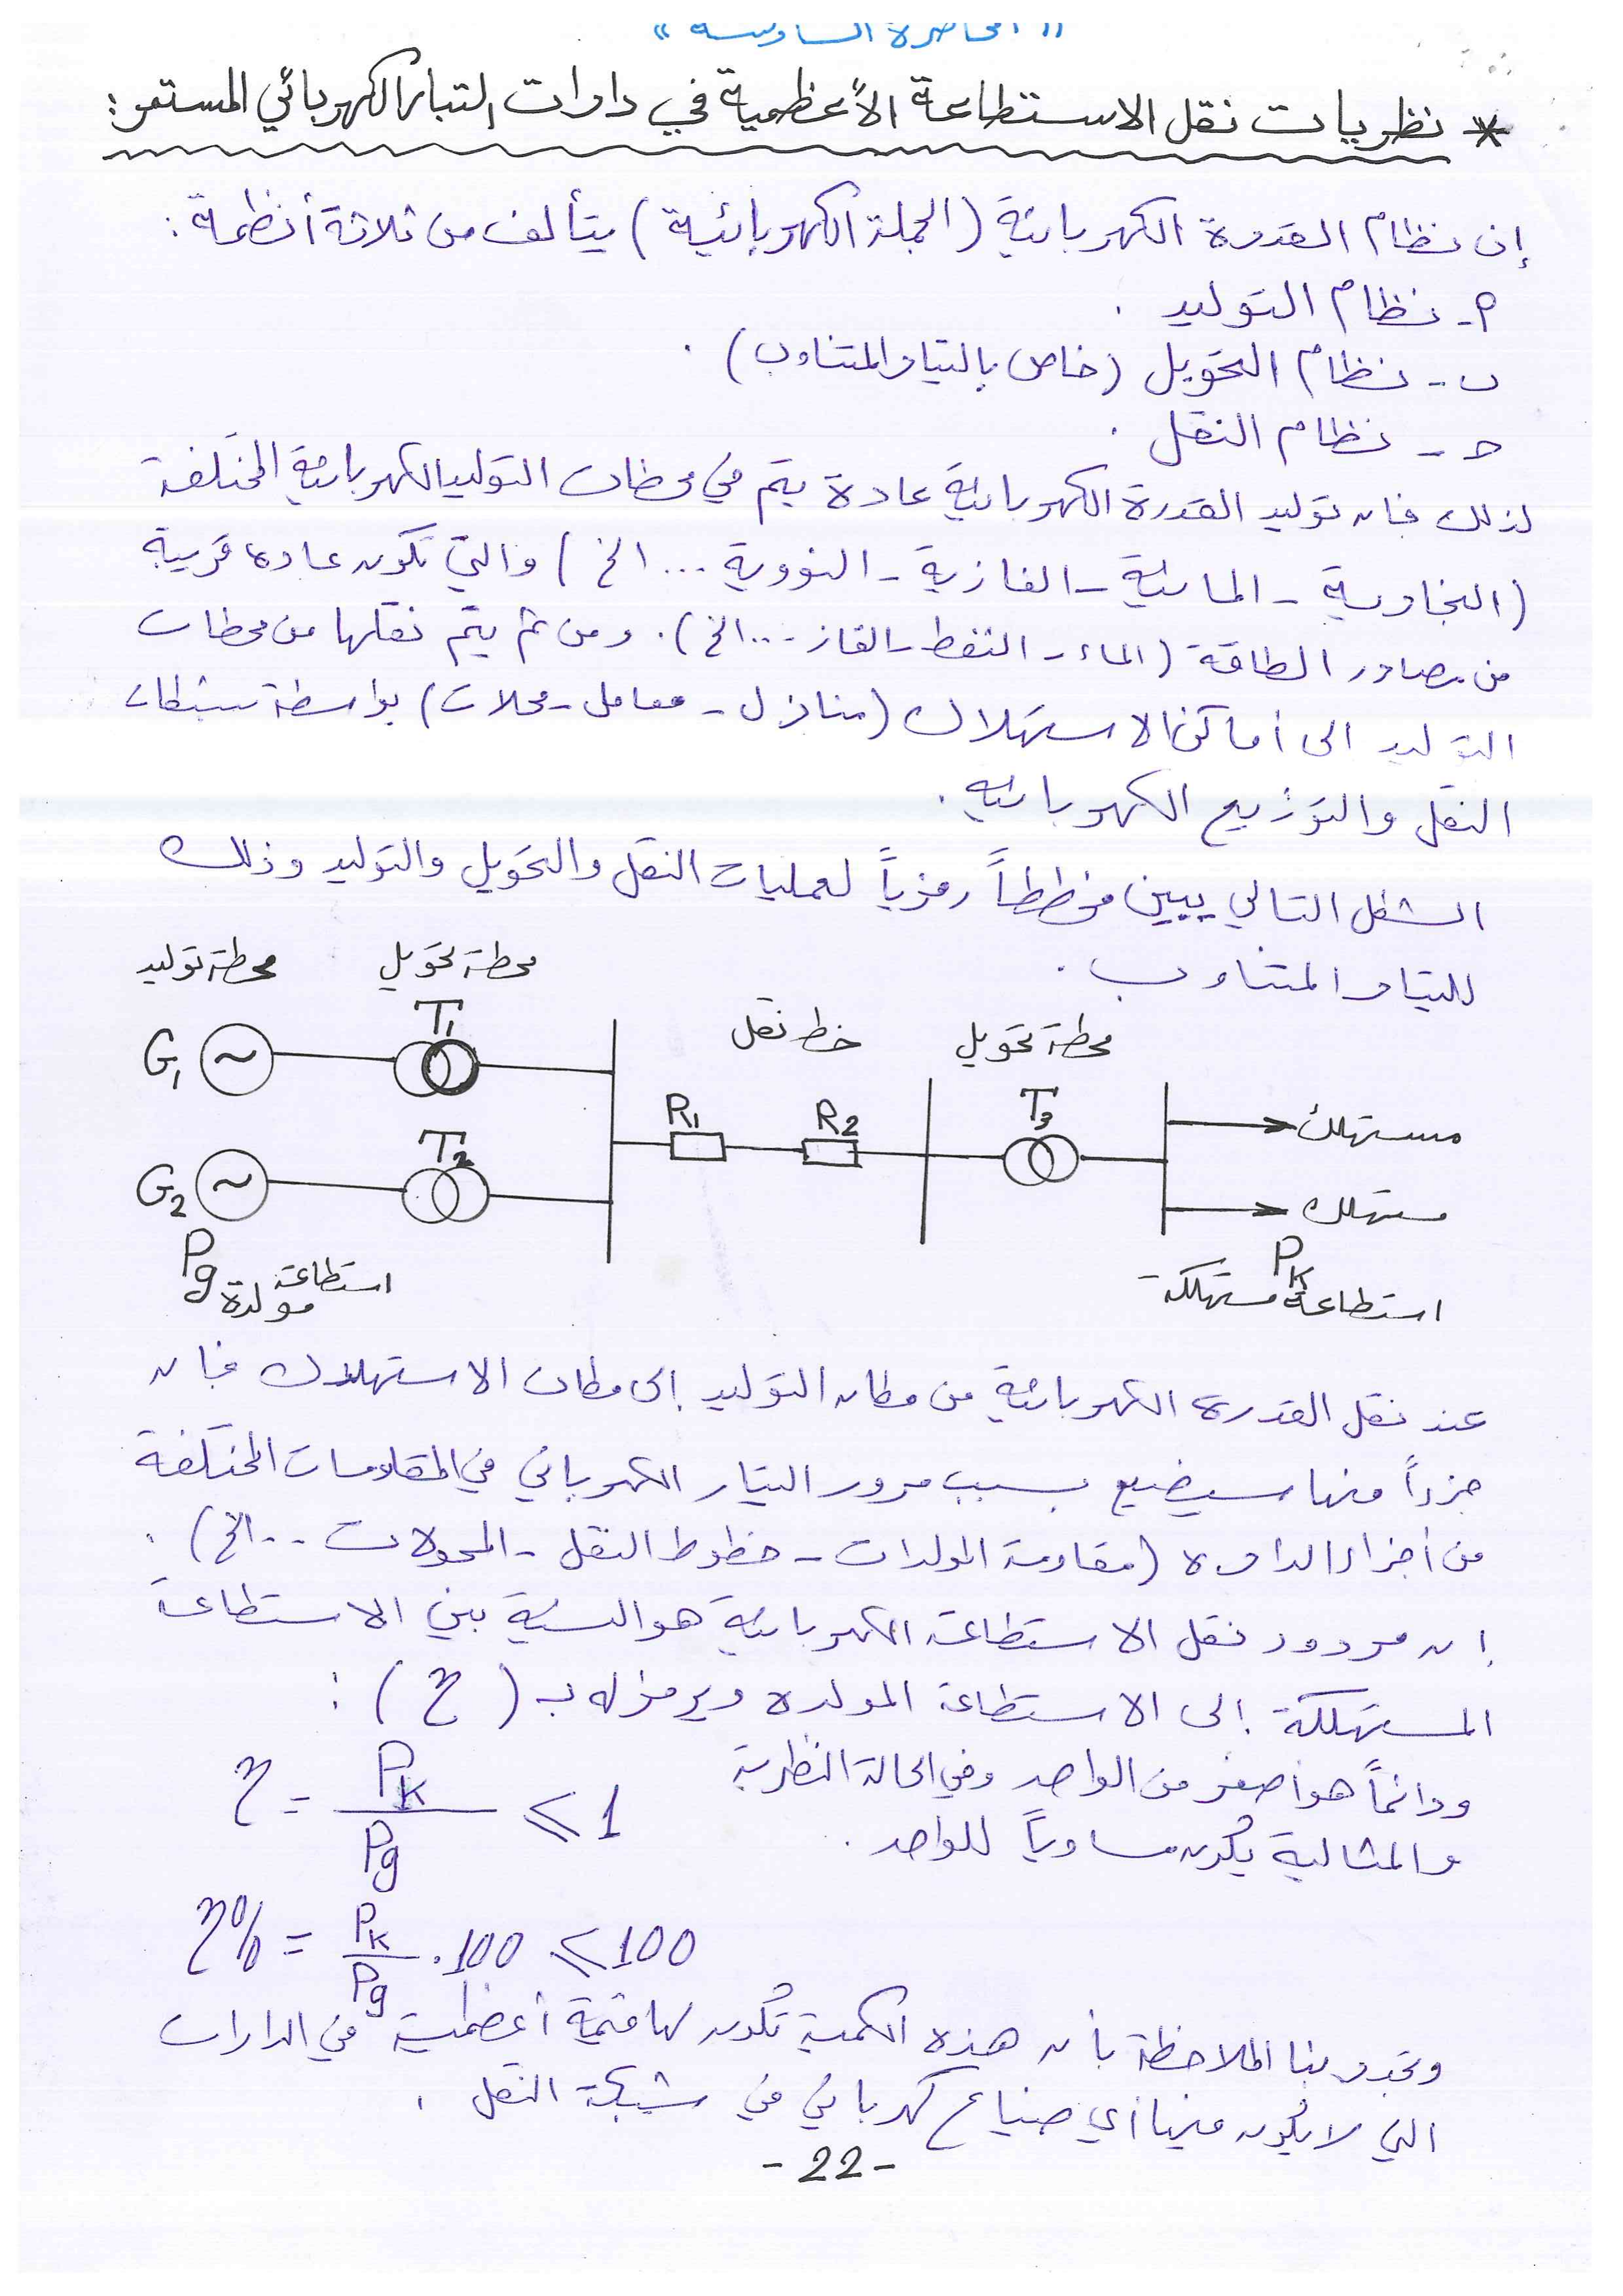 "المحاضرة السادسة"
* نظريات نقل الاستطاعة الأعظمية في دارات التيار الكهربائي المستمر:
إن نظام القدرة الكهربائية (الجملة الكهربائية) يتألف من ثلاثة أنظمة:
أ- نظام التوليد.
ب- نظام التحويل (خاص بالتيار المتناوب).
حـ- نظام النقل.
لذلك فان توليد القدرة الكهربائية عادة يتم في محطات التوليد الكهربائية المختلفة
(البخارية - المائية - الغازية - النووية ... الخ) والتي تكون عادة قريبة
من مصادر الطاقة (الماء - النفط - الغاز ... الخ). ومن ثم يتم نقلها من محطات
التوليد الى أماكن الاستهلاك (منازل - معامل - محلات) بواسطة شبكات
النقل والتوزيع الكهربائية.
الشكل التالي يبين مخططاً رمزياً لعمليات النقل والتحويل والتوليد وذلك
للتيار المتناوب.
محطة توليد
محطة تحويل
خط نقل
محطة تحويل
G1
T1
R1
R2
T3
مستهلك
G2
T2
مستهلك
Pg
استطاعة مولدة
PK
استطاعة مستهلكة
عند نقل القدرة الكهربائية من مكان التوليد إلى مكان الاستهلاك فان
جزءاً منها سيضيع بسبب مرور التيار الكهربائي في المقاومات المختلفة
من أجزاء الدارة (مقاومة المولدات - خطوط النقل - المحولات ... الخ).
إن مردود نقل الاستطاعة الكهربائية هو النسبة بين الاستطاعة
المستهلكة إلى الاستطاعة المولدة ويرمز له بـ (η):
ودائماً هو أصغر من الواحد وفي الحالة النظرية
η = PK / Pg ≤ 1
والمثالية يكون مساوياً للواحد.
η% = PK / Pg . 100 ≤ 100
وتجدر بنا الملاحظة بأن هذه الكمية تكون لها قيمة أعظمية في الدارات
التي لا يكون فيها أي ضياع كهربائي في شبكة النقل.
- 22 -